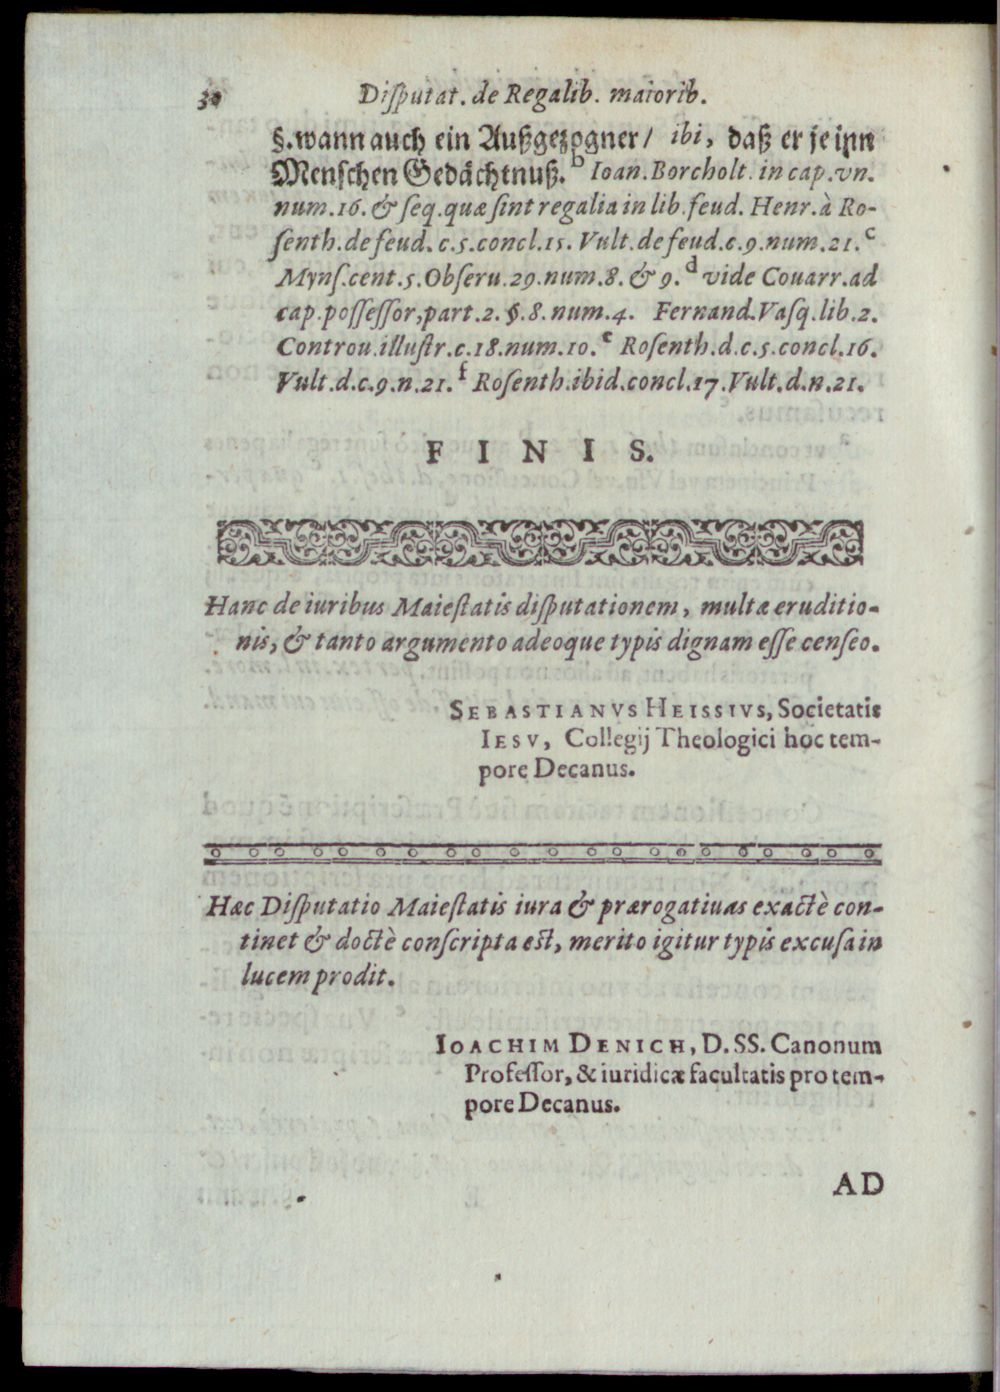 30 Diſputat. de Regalib. maiorib.
§. wann auch ein Außgezogner / ibi, daß er je inn
Menschen Gedächtnuß. b Ioan. Borcholt. in cap. vn.
num. 16. & ſeq. quæ ſint regalia in lib. feud. Henr. à Ro-
ſenth. de feud. c. 5. concl. 15. Vult. de feud. c. 9. num. 21. c
Mynſ. cent. 5. Obſeru. 29. num. 8. & 9. d vide Couarr. ad
cap. poſſeſſor, part. 2. §. 8. num. 4. Fernand. Vaſq. lib. 2.
Controu. illuſtr. c. 18. num. 10. e Roſenth. d. c. 5. concl. 16.
Vult. d. c. 9. n. 21. f Roſenth. ibid. concl. 17. Vult. d. n. 21.
FINIS.
Hanc de iuribus Maieſtatis diſputationem, multæ eruditio-
nis, & tanto argumento adeoque typis dignam eſſe cenſeo.
SEBASTIANVS HEISSIVS, Societatis
IESV, Collegij Theologici hoc tem-
pore Decanus.
Hæc Diſputatio Maieſtatis iura & prærogatiuas exactè con-
tinet & doctè conſcripta est, merito igitur typis excuſa in
lucem prodit.
IOACHIM DENICH, D. SS. Canonum
Profeſſor, & iuridicæ facultatis pro tem-
pore Decanus.
AD